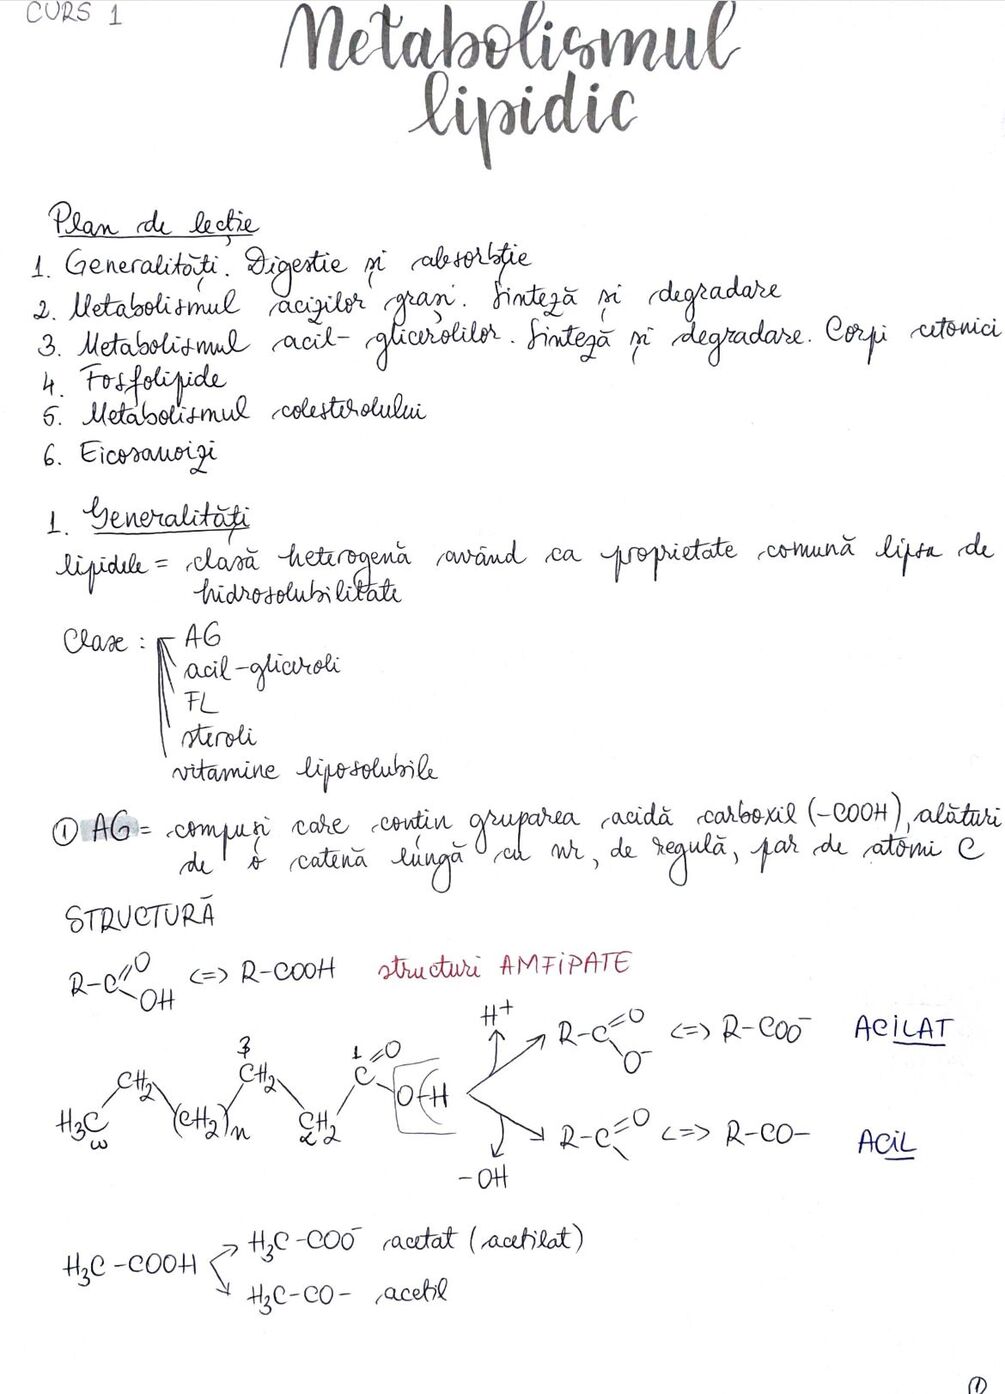 CURS 1
Metabolismul
lipidic
Plan de lecție
1. Generalități. Digestie și absorbție
2. Metabolismul acizilor grași. Sinteză și degradare
3. Metabolismul acil-glicerolilor. Sinteză și degradare. Corpi cetonici
4. Fosfolipide
5. Metabolismul colesterolului
6. Eicosanoizi
1. Generalități
lipidele = clasă heterogenă având ca proprietate comună lipsa de
hidrosolubilitate
Clase : AG
acil-gliceroli
FL
steroli
vitamine liposolubile
① AG = compuși care conțin gruparea acidă carboxil (-COOH), alături
de o catenă lungă cu nr, de regulă, par de atomi C
STRUCTURĂ
R-C=O OH <=> R-COOH structuri AMFIPATE
H+
R-C=O O⁻ <=> R-COO⁻ ACILAT
H₃C ω CH₂ (CH₂)n CH₂ 3 CH₂ 2 C 1 =O OH
R-C=O <=> R-CO- ACIL
-OH
H₃C-COOH
H₃C-COO⁻ acetat (acetilat)
H₃C-CO- acetil
①